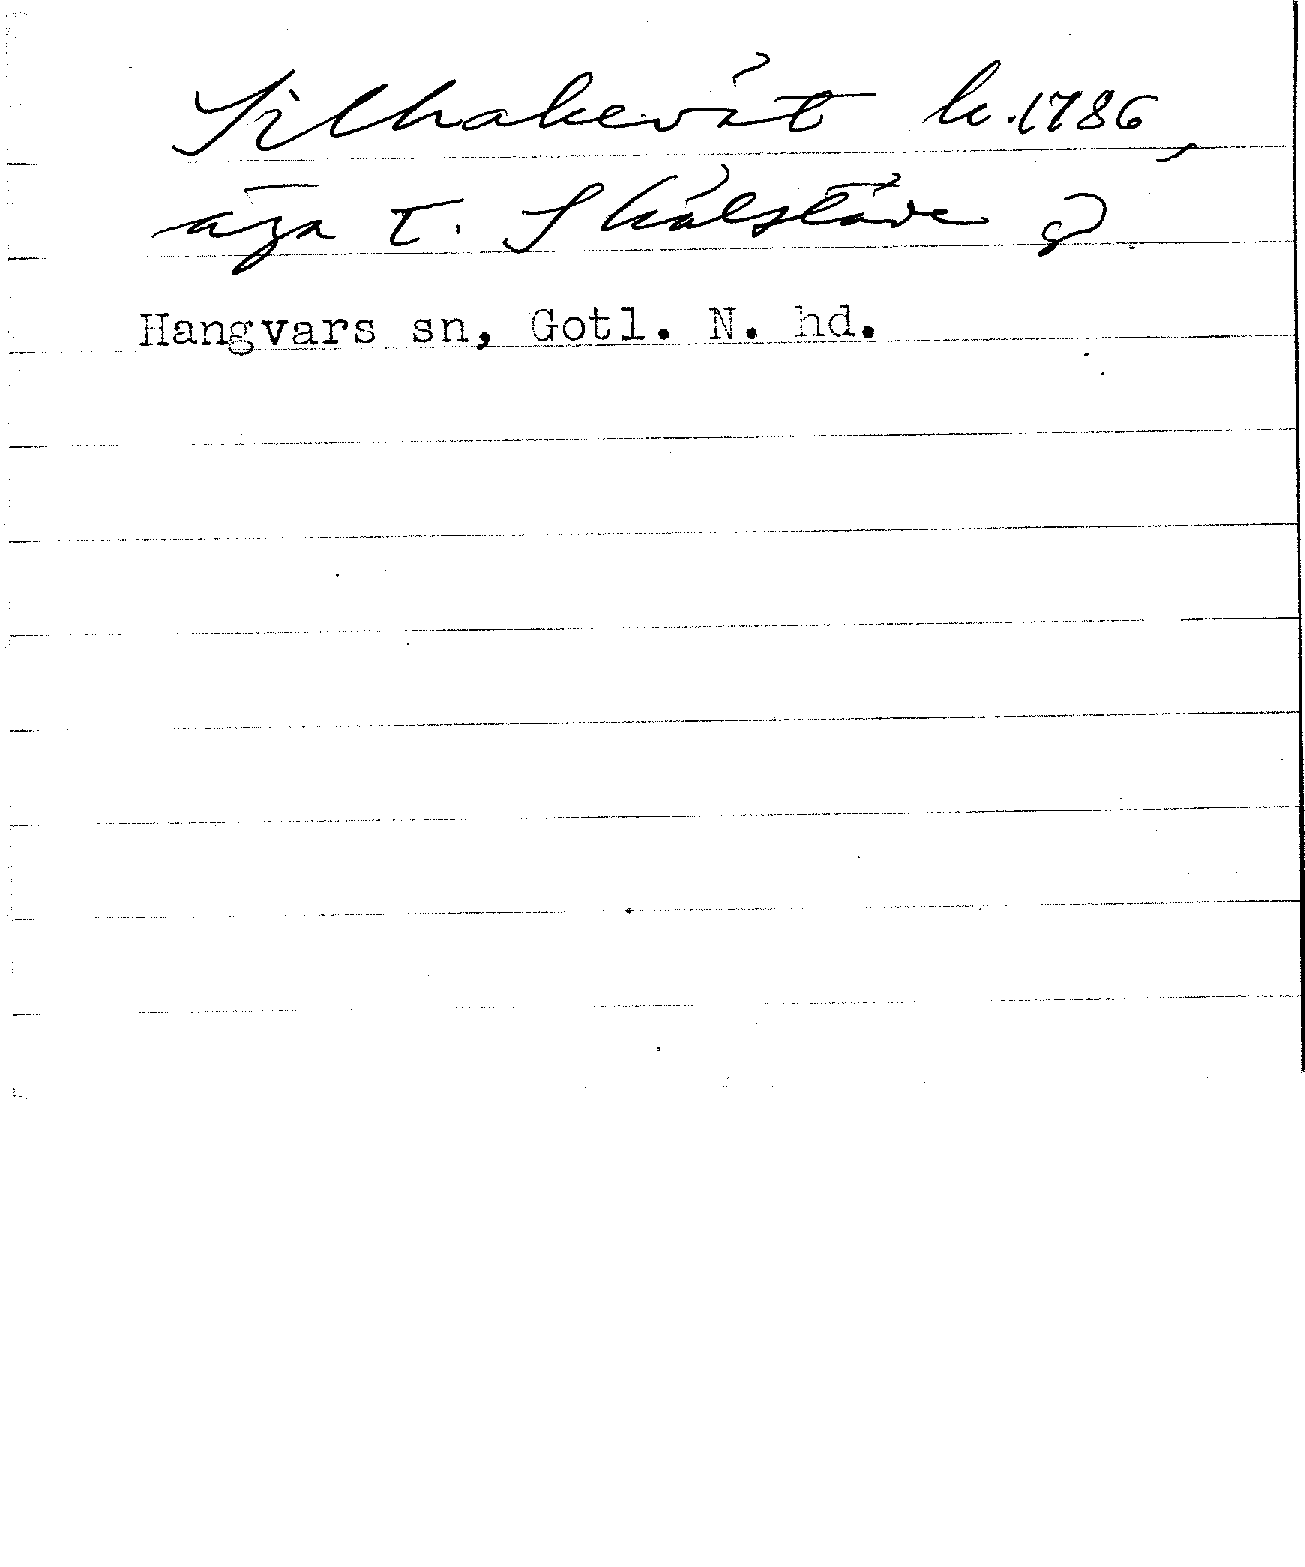 Silhakevät k. 1786,
äga t. Skälstäde g
Hangvars sn, Gotl. N. hd.